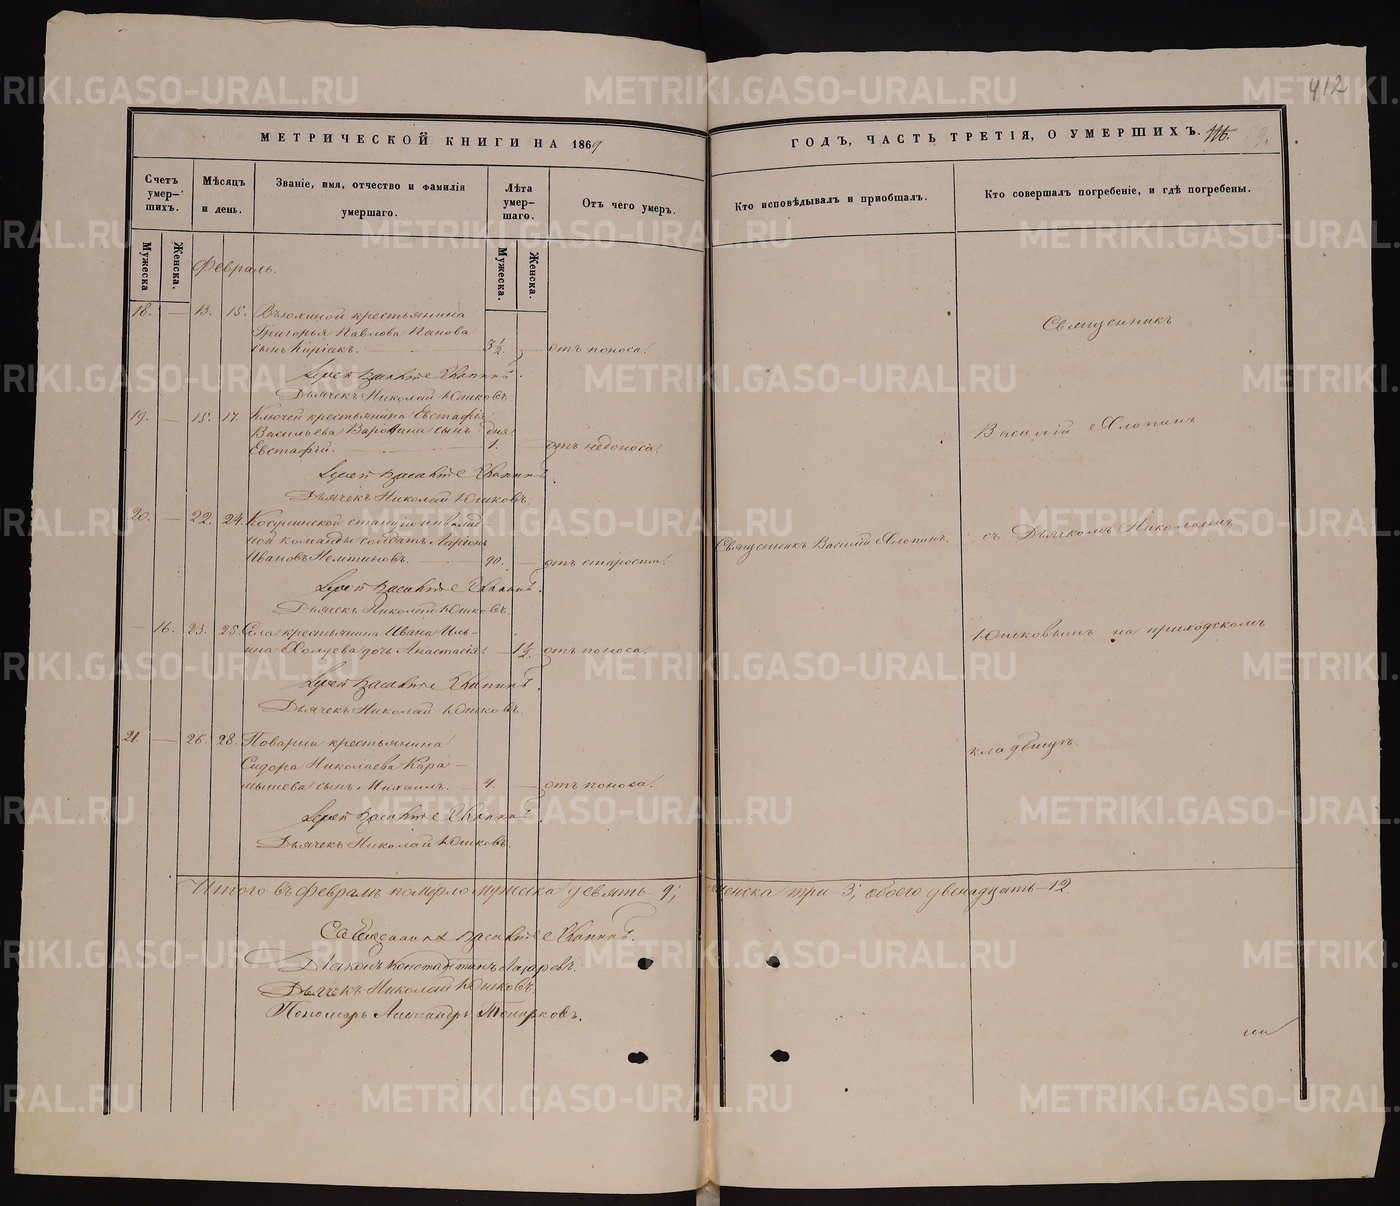 412
МЕТРИЧЕСКОЙ КНИГИ НА 1869
ГОДЪ, ЧАСТЬ ТРЕТІЯ, О УМЕРШИХЪ.
Счетъ умер-шихъ.
Мѣсяцъ и день.
Званіе, имя, отчество и фамилія умершаго.
Лѣта умер-шаго.
Отъ чего умеръ.
Кто исповѣдывалъ и пріобщалъ.
Кто совершалъ погребеніе, и гдѣ погребены.
Мужеска
Женска.
Мужеска.
Женска.
Февраль.
18. — 13. 15. Вьюхиной крестьянина
Григорья Павлова Панова
сынъ Киріакъ. 3 1/2. — отъ поноса.
Іерей Василій Хлопинъ.
Дьячекъ Николай Юшковъ
19. — 15. 17. Ключей крестьянина Евстафія
Васильева сынъ дня
Евстафій. 1. — отъ недоноса.
Іерей Василій Хлопинъ.
Дьячекъ Николай Юшковъ.
20. — 22. 24. Косулинской станціи инвалид-
ной команды солдатъ Ларіонъ
Ивановъ 90. — отъ старости.
Священникъ Василій Хлопинъ.
Іерей Василій Хлопинъ.
Дьячекъ Николай Юшковъ.
— 16. 23. 25. Села крестьянина Ивана Иль-
ина дочь Анастасія. — 1 1/2. отъ поноса.
Іерей Василій Хлопинъ.
Дьячекъ Николай Юшковъ.
21. — 26. 28. Поварни крестьянина
Сидора Николаева Кара-
мышева сынъ Михаилъ. 4. — отъ поноса.
Іерей Василій Хлопинъ
Дьячекъ Николай Юшковъ.
Священникъ
Василій Хлопинъ
съ Дьячкомъ Николаемъ
Юшковымъ на приходскомъ
кладбищѣ.
Итого въ Февралѣ померло мужеска девять—9; женска три—3; обоего двенадцать—12
Священникъ Василій Хлопинъ.
Діаконъ Константинъ Лазаревъ.
Дьячекъ Николай Юшковъ.
Пономарь Александръ Топорковъ.
METRIKI.GASO-URAL.RU